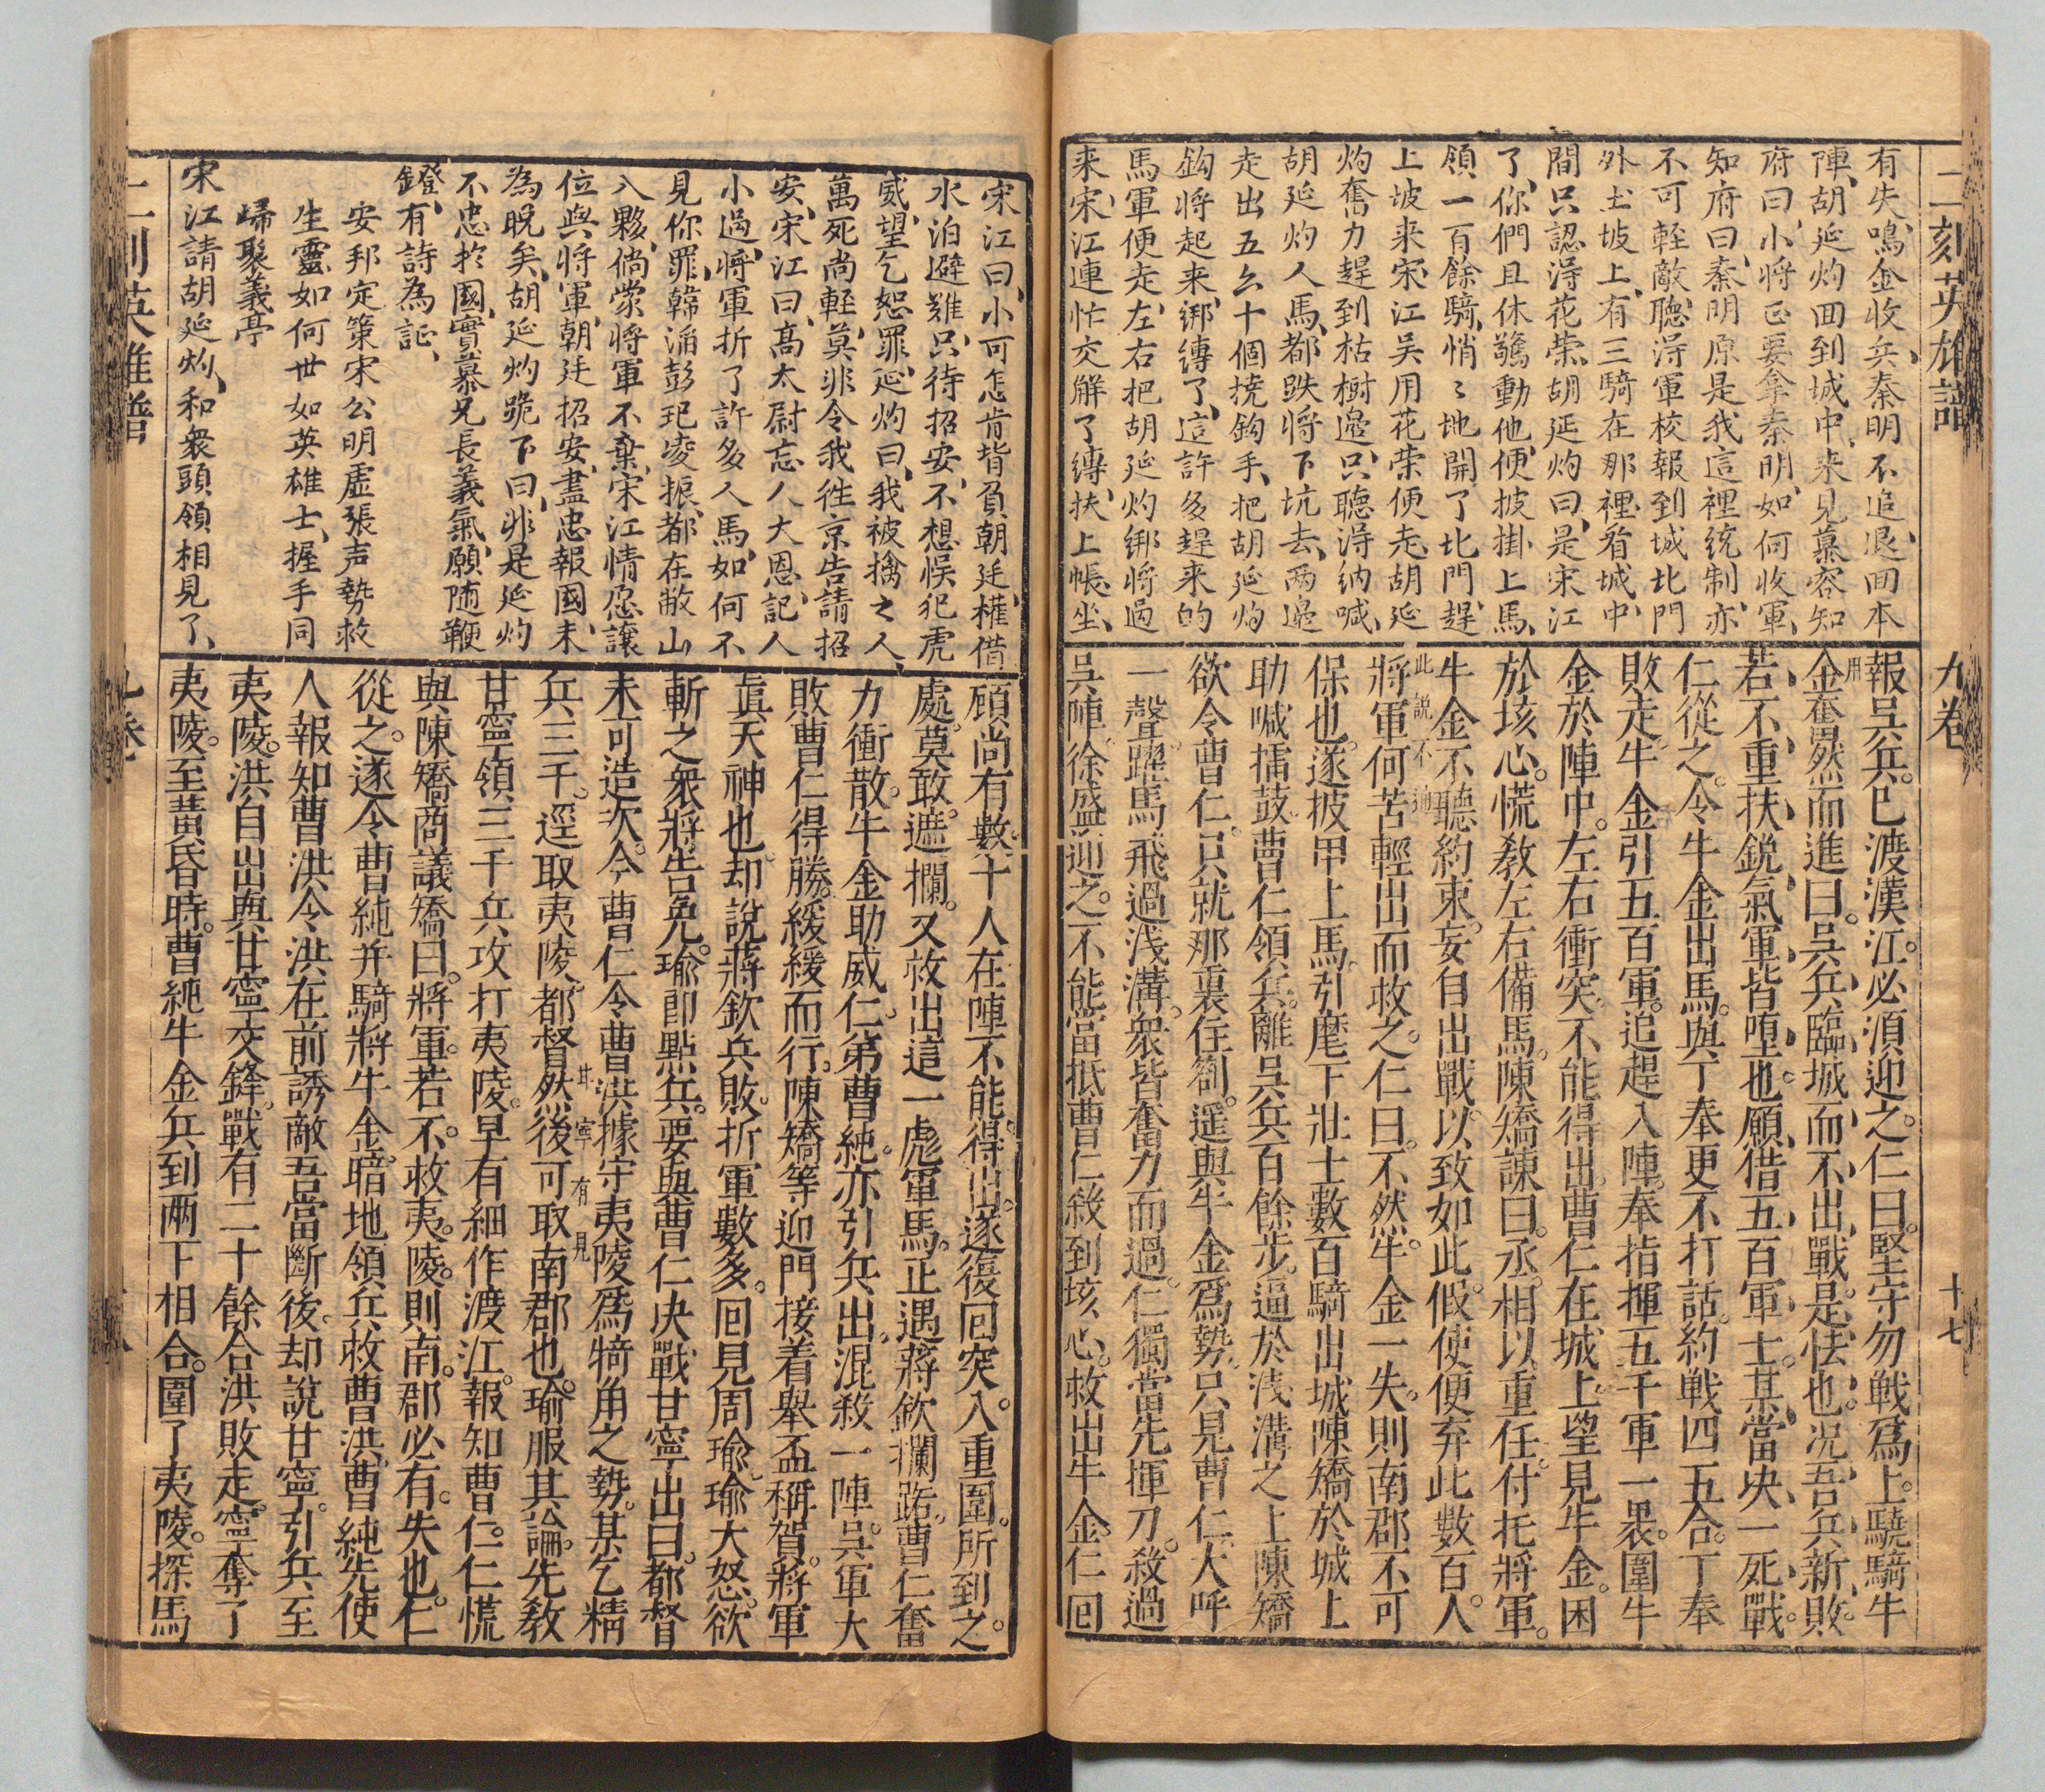 二刻英雄譜
九卷
十七
有失、鳴金收兵、秦明不追、退回本
陣、胡延灼回到城中、来見慕容知
府曰、小将正要拿秦明、如何收軍、
知府曰、秦明原是我這裡統制、亦
不可輊敵、聴淂軍校報到城北門
外土坡上、有三騎在那裡看城中、
間只認淂花荣、胡延灼曰、是宋江
了、你們且休驚動他、便披掛上馬、
領一百餘騎、悄〻地開了北門、趕
上坡来、宋江吴用花荣便走、胡延
灼奮力趕到枯樹邉、只聴淂纳喊、
胡延灼人馬、都跌将下坑去、两邉
走出五六十個挠鈎手、把胡延灼
鈎将起来、绑縳了、這許多趕来的
馬軍便走、左右把胡延灼绑将過
来、宋江連忙交觧了縳、扶上帳坐、
報吴兵。已渡漢江。必須迎之。仁曰。堅守勿戦爲上。驍騎牛
金奮然而進曰。吴兵臨城而不出戰。是怯也。况吾兵新敗。
用
若不重扶鋭氣。軍皆堕也。願借五百軍士。某當决一死戰。
仁從之。令牛金出馬。與丁奉更不打話。約戦四五合。丁奉
敗走。牛金引五百軍。追趕入陣。奉指揮五千軍一褁。圍牛
金於陣中。左右衝突。不能得出。曹仁在城上。望見牛金。困
於垓心。慌敎左右備馬。陳矯諫曰。丞相以重任付托將軍。
牛金不聽約束。妄自出戰。以致如此。假使便弃此數百人。
此説不通
將軍何苦輕出而救之。仁曰。不然。牛金一失。則南郡不可
保也。遂披甲上馬。引麾下壯士數百騎出城。陳矯於城上
助喊擂鼓。曹仁領兵。離吴兵百餘步。逼於浅溝之上。陳矯
欲令曹仁。只就那裏住劄。遥與牛金爲勢。只見曹仁大呼
一聲。躍馬飛過浅溝。衆皆奮力而過。仁獨當先。揮刀殺過
吴陣。徐盛迎之。不能當抵。曹仁殺到垓心。救出牛金。仁回
宋江曰、小可怎肯背負朝廷、權借
水泊避難、只待招安、不想悮犯虎
威、望乞恕罪、延灼曰、我被擒之人、
萬死尚軽、莫非令我徃京告請招
安、宋江曰、高太尉忘人大恩、記人
小過、将軍折了許多人馬、如何不
見你罪、韓滔彭玘凌振、都在敝山
八夥、倘蒙将軍不棄、宋江情愿讓
位與将軍、朝廷招安、盡忠報國、未
為晚矣、胡延灼跪下曰、非是延灼
不忠於國、實慕兄長義氣、願随鞭
鐙、有詩為証、
安邦定策宋公明虛張声勢救
生靈如何世如英雄士、握手同
歸聚義亭
宋江請胡延灼、和衆頭領相見了、
顧尚有數十人在陣不能得出。遂復回突入重圍。所到之
處。莫敢遮攔。又救出這一彪軍馬。正遇蔣欽攔路。曹仁奮
力衝散。牛金助威。仁弟曹純。亦引兵出。混殺一陣。吴軍大
敗。曹仁得勝。緩緩而行。陳矯等迎門接着舉盃稱賀。將軍
眞天神也。却說蔣欽兵敗。折軍數多。回見周瑜。瑜大怒。欲
斬之。衆將告免。瑜即點兵。要與曹仁决戰。甘寧出曰。都督
未可造次。今曹仁令曹洪據守夷陵。爲犄角之勢。某乞精
甘寧有見
兵三千。逕取夷陵。都督然後可取南郡也。瑜服其論。先敎
甘寧領三千兵。攻打夷陵。早有細作渡江。報知曹仁。仁慌
與陳矯商議。矯曰。將軍。若不救夷陵。則南郡必有失也。仁
從之。遂令曹純并騎將牛金。暗地領兵救曹洪。曹純先使
人報知曹洪。令洪在前誘敵。吾當斷後。却說甘寧引兵至
夷陵。洪自出與甘寧交鋒。戰有二十餘合。洪敗走。寧奪了
夷陵。至黄昏時。曹純牛金兵到。兩下相合。圍了夷陵。探馬